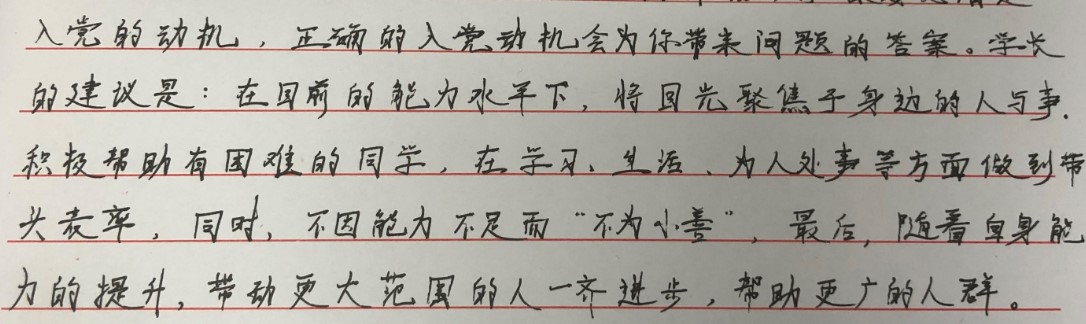 入党的动机，正确的入党动机会为你带来问题的答案。学长
的建议是：在目前的能力水平下，将目光聚焦于身边的人与事.
积极帮助有困难的同学，在学习、生活、为人处事等方面做到带
头表率，同时，不因能力不足而“不为小善”，最后，随着自身能
力的提升，带动更大范围的人一齐进步，帮助更广的人群。